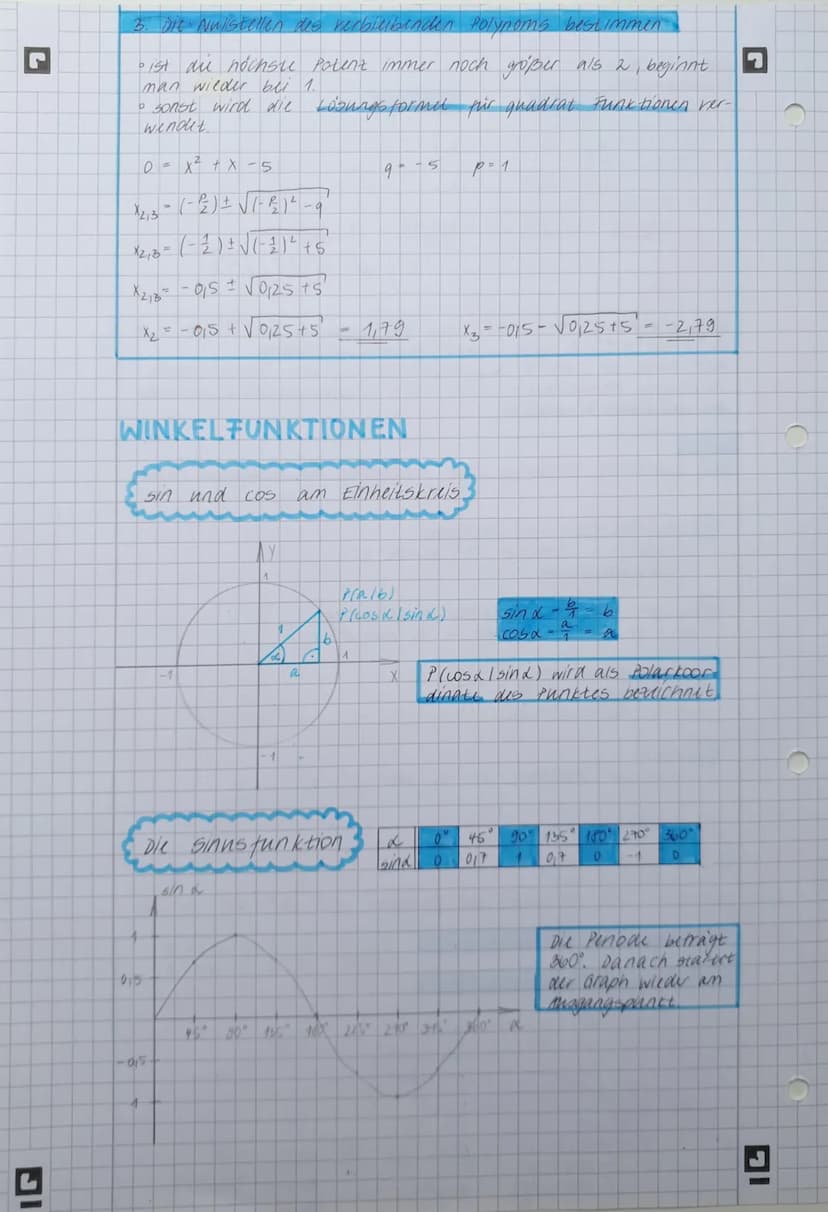 3. Die Nullstellen des verbleibenden Polynoms bestimmen
° ist die höchste Potenz immer noch größer als 2, beginnt
man wieder bei 1.
° sonst wird die Lösungsformel für quadrat Funktionen ver-
wendet.
0 = x² + x - 5    q = -5    p = 1
x₂,₃ = (-p/2) ± √((-p/2)² - q)
x₂,₃ = (-1/2) ± √((-1/2)² + 5)
x₂,₃ = -0,5 ± √(0,25 + 5)
x₂ = -0,5 + √(0,25+5) = 1,79    x₃ = -0,5 - √(0,25+5) = -2,79
WINKELFUNKTIONEN
sin und cos am Einheitskreis
y
1
P(a/b)
P(cosα/sinα)
1
b
α
a
-1
1
x
-1
sinα = b/1 = b
cosα = a/1 = a
P(cosα/sinα) wird als Polarkoor-
dinate des Punktes bezeichnet
Die Sinusfunktion
α 0° 45° 90° 135° 180° 270° 360°
sinα 0 0,7 1 0,7 0 -1 0
sin α
1
0,5
45° 90° 135° 180° 225° 270° 315° 360° α
-0,5
-1
Die Periode beträgt
360°. Danach startet
der Graph wieder am
Ausgangspunkt.